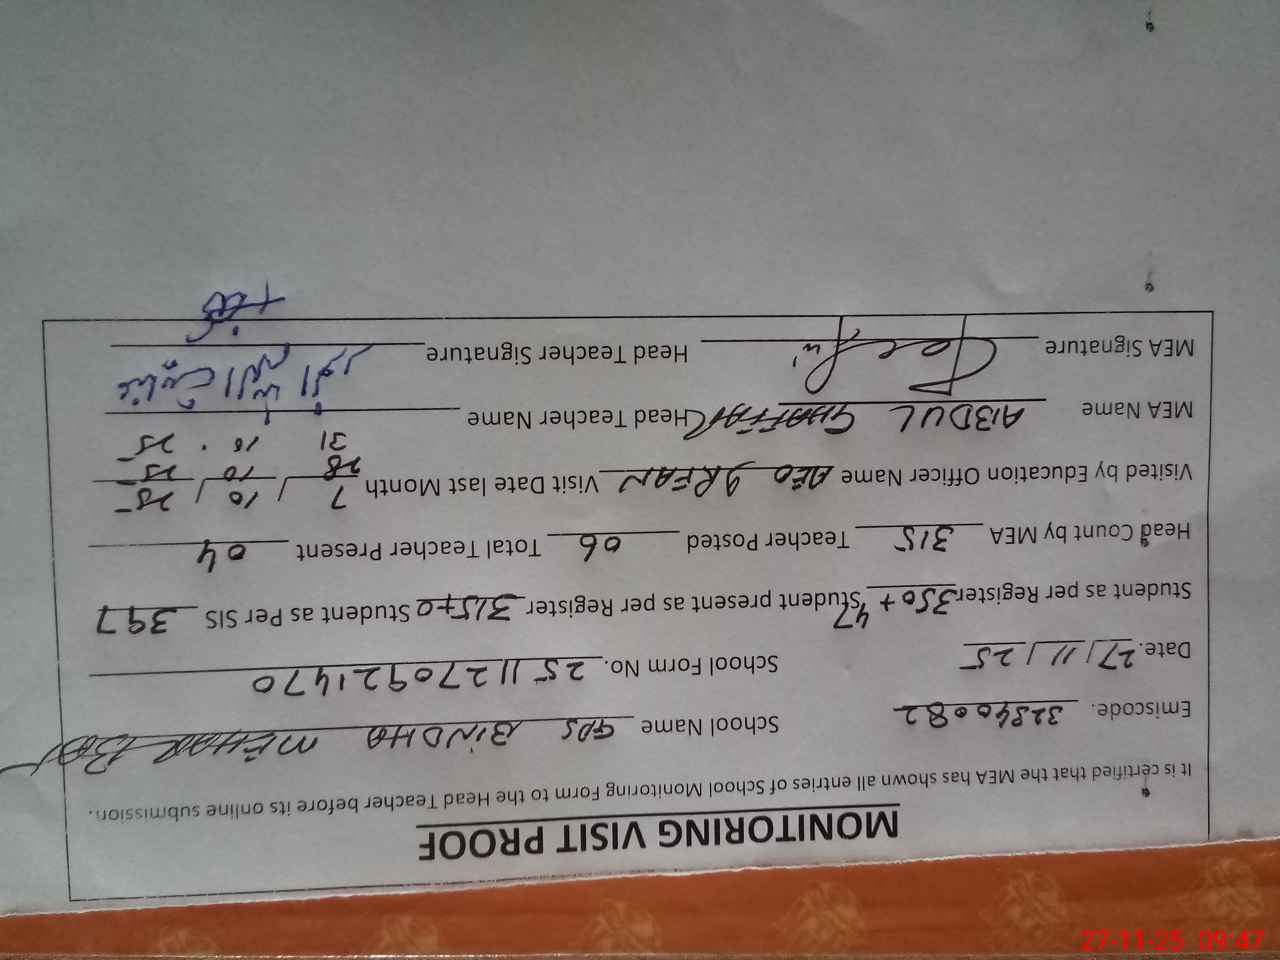 MONITORING VISIT PROOF
It is certified that the MEA has shown all entries of School Monitoring Form to the Head Teacher before its online submission.
Emiscode. 32840082 School Name GPS BINDHA MEHAR
Date. 27/11/25 School Form No. 2511270921470
Student as per Register 350 + 47 Student present as per Register 315+0 Student as Per SIS 397
Head Count by MEA 315 Teacher Posted 06 Total Teacher Present 04
Visited by Education Officer Name AEO IRFAN Visit Date last Month 7 / 10 / 25
28 10 25
31 10 . 25
MEA Name ABDUL GHAFFAR Head Teacher Name
MEA Signature Head Teacher Signature
27-11-25 09:47